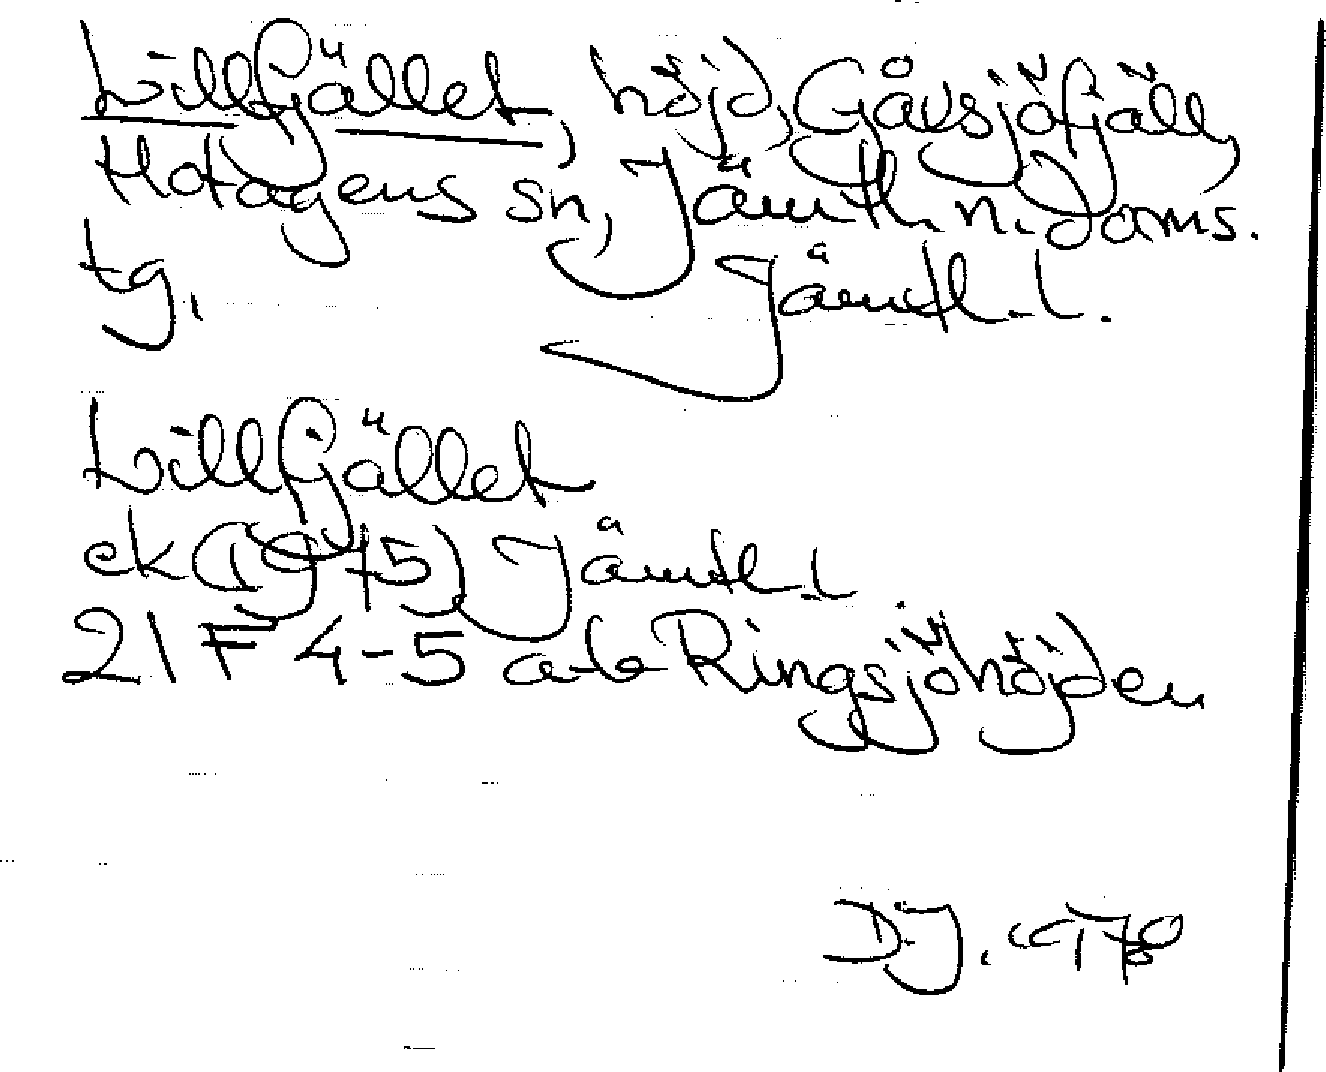 Lillfjället, höjd, Gåvsjöfjäll,
Hotagens sn, Jämtl. n. doms.
tg. Jämtl. l.
Lillfjället
ek (1975) Jämtl. l
21 F 4-5 a-b Ringsjöhöjden
D.J.